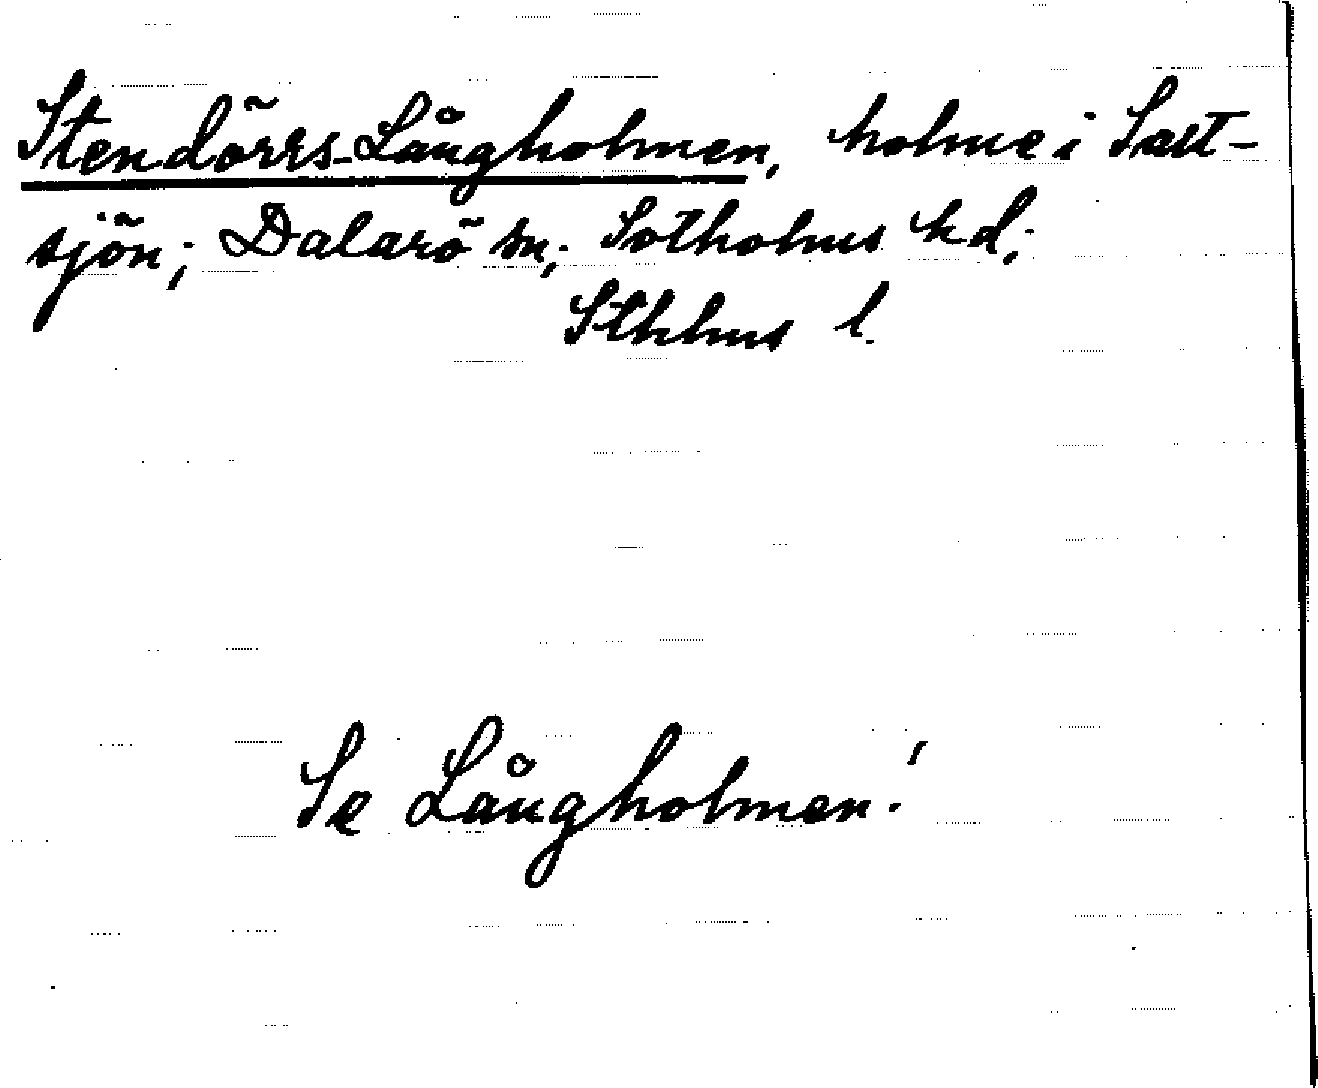 Stendörrs-Långholmen, holme i Salt-
sjön; Dalarö sn; Sotholms hd;
Sthlms l.
Se Långholmen!